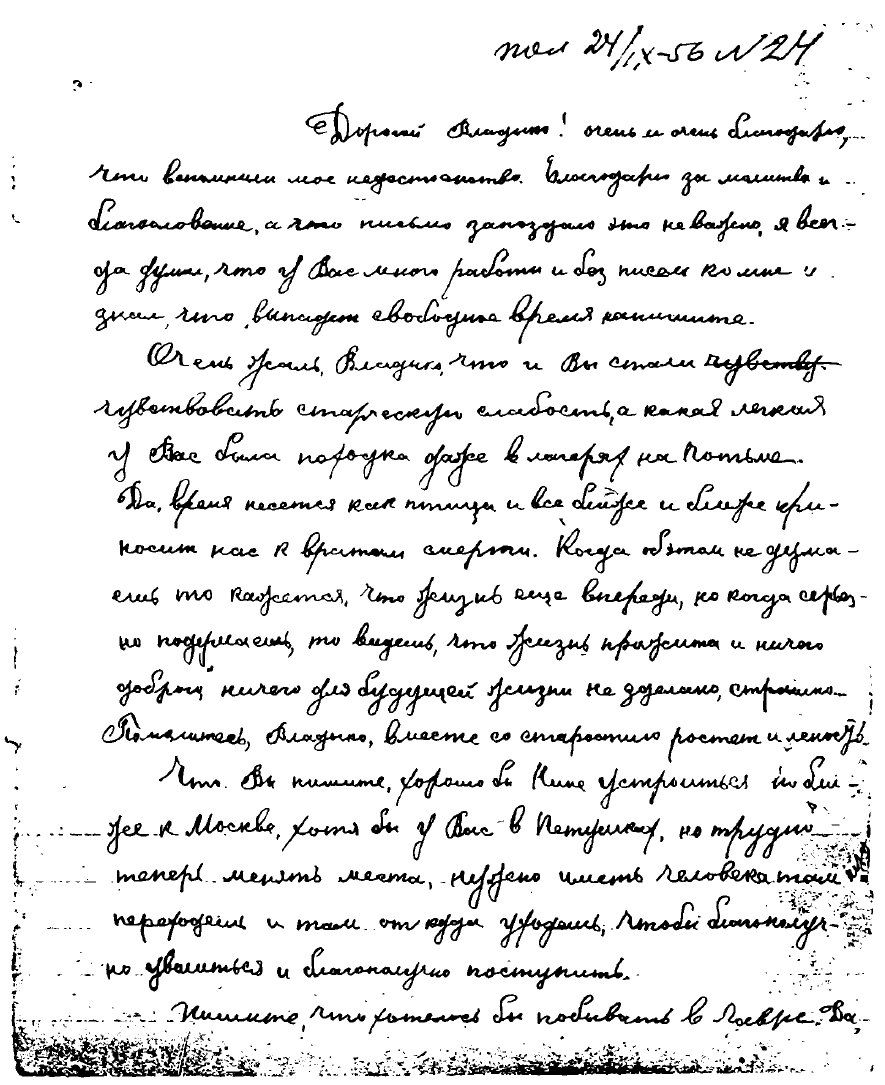 пол 24/IX-56 N 24
Дорогой Владыко! очень и очень благодарю,
что вспомнили мое недостоинство. Благодарю за молитвы и
благословение, а что письмо запоздало это не важно, я всег-
да думал, что у Вас много работы и без писем ко мне и
знал, что выпадет свободное время напишите.
Очень жаль, Владыко, что и Вы стали чувству-
чувствовать старческую слабость, а какая легкая
у Вас была походка даже в лагерях на Потьме.
Да, время несется как птица и все ближе и ближе при-
носит нас к вратам смерти. Когда об этом не дума-
ешь то кажется, что жизнь еще впереди, но когда серьез-
но подумаешь, то видешь, что жизнь прожита и ничего
доброго ничего для будущей жизни не зделано, страшно.
Помолитесь, Владыко, вместе со старостию ростет и леность.
Что Вы пишите, хорошо бы Нине устроиться побли-
же к Москве, хотя бы у Вас в Петушках, но трудно
теперь менять места, нужно иметь человека там
переходешь и там откуда уходешь, чтобы благополуч-
но уволиться и благополучно поступить.
Пишите, что хотелось бы побывать в Лавре. Да,